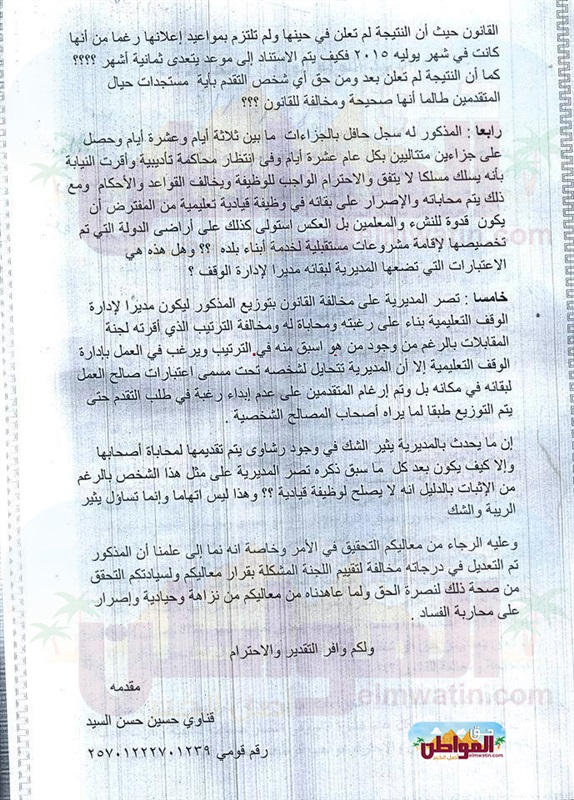 القانون حيث أن النتيجة لم تعلن في حينها ولم تلتزم بمواعيد إعلانها رغما من أنها
كانت في شهر يوليه ٢٠١٥ فكيف يتم الاستناد إلى موعد يتعدى ثمانية أشهر ؟؟؟؟
كما أن النتيجة لم تعلن بعد ومن حق أي شخص التقدم بأية مستجدات حيال
المتقدمين طالما أنها صحيحة ومخالفة للقانون ؟؟؟
رابعا : المذكور له سجل حافل بالجزاءات ما بين ثلاثة أيام وعشرة أيام وحصل
على جزاءين متتاليين بكل عام عشرة أيام وفى انتظار محاكمة تأديبية وأقرت النيابة
بأنه يسلك مسلكا لا يتفق والاحترام الواجب للوظيفة ويخالف القواعد والأحكام ومع
ذلك يتم محاباته والإصرار على بقائه في وظيفة قيادية تعليمية من المفترض أن
يكون قدوة للنشء والمعلمين بل العكس استولى كذلك على أراضى الدولة التي تم
تخصيصها لإقامة مشروعات مستقبلية لخدمة أبناء بلده ؟؟ وهل هذه هي
الاعتبارات التي تضعها المديرية لبقائه مديرا لإدارة الوقف ؟
خامسا : تصر المديرية على مخالفة القانون بتوزيع المذكور ليكون مديرًا لإدارة
الوقف التعليمية بناء على رغبته ومحاباة له ومخالفة الترتيب الذي أقرته لجنة
المقابلات بالرغم من وجود من هو اسبق منه في الترتيب ويرغب في العمل بإدارة
الوقف التعليمية إلا أن المديرية تتحايل لشخصه تحت مسمى اعتبارات صالح العمل
لبقائه في مكانه بل وتم إرغام المتقدمين على عدم إبداء رغبة في طلب التقدم حتى
يتم التوزيع طبقا لما يراه أصحاب المصالح الشخصية .
إن ما يحدث بالمديرية يثير الشك في وجود رشاوى يتم تقديمها لمحاباة أصحابها
وإلا كيف يكون بعد كل ما سبق ذكره تصر المديرية على مثل هذا الشخص بالرغم
من الإثبات بالدليل انه لا يصلح لوظيفة قيادية ؟؟ وهذا ليس اتهاما وإنما تساؤل يثير
الريبة والشك
وعليه الرجاء من معاليكم التحقيق في الأمر وخاصة انه نما إلى علمنا أن المذكور
تم التعديل في درجاته مخالفة لتقييم اللجنة المشكلة بقرار معاليكم ولسيادتكم التحقق
من صحة ذلك لنصرة الحق ولما عاهدناه من معاليكم من نزاهة وحيادية وإصرار
على محاربة الفساد .
ولكم وافر التقدير والاحترام
مقدمه
قناوي حسين حسن السيد
رقم قومي ٢٥٧٠١٢٢٢٧٠١٢٣٩
حق
المواطن
elmwatin.com